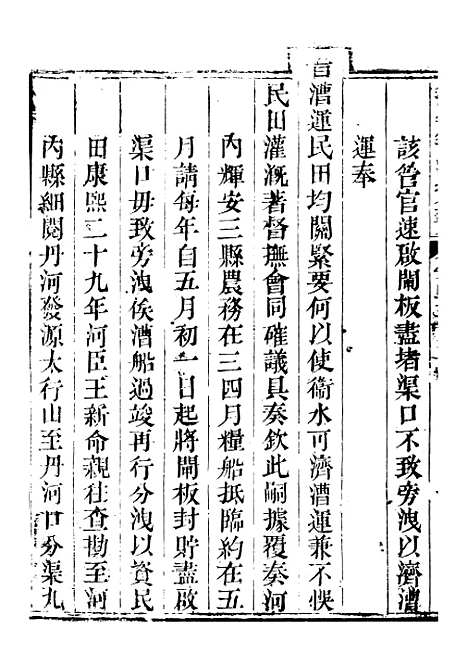 該管官速啟閘板盡堵渠口不致旁洩以濟漕
運奉
旨漕運民田均關緊要何以使衞水可濟漕運兼不悞
民田灌溉著督撫會同確議具奏欽此嗣據覆奏河
內輝安三縣農務在三四月糧船抵臨約在五
月請每年自五月初一日起將閘板封貯盡啟
渠口毋致旁洩俟漕船過竣再行分洩以資民
田康熙二十九年河臣王新命親往查勘至河
內縣細閱丹河發源太行山至丹河口分渠九